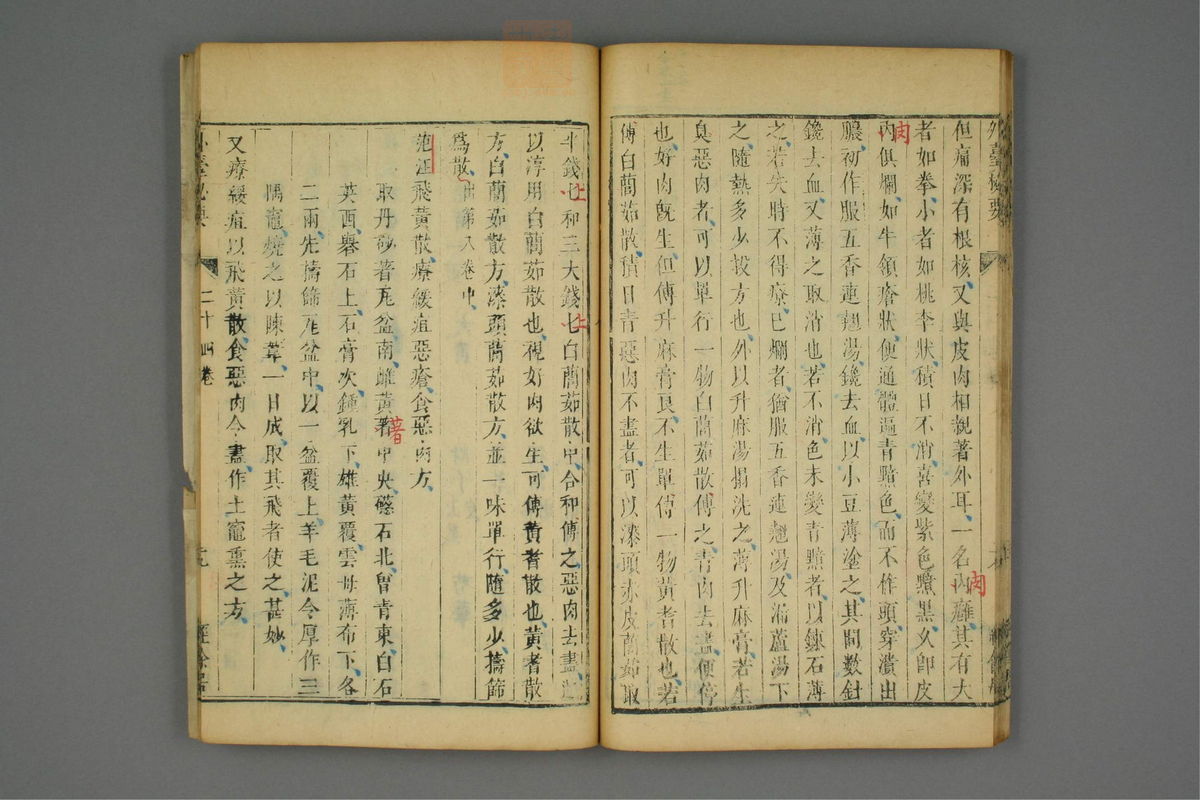 外臺秘要
但痛深有根核又與皮肉相親著外耳一名內癰其有大
者如拳小者如桃李狀積日不消喜變紫色黯黑久卽皮
內俱爛如牛領瘡狀便通體遍青黯色而不作頭穿潰出
膿初作服五香連翹湯鑱去血以小豆薄塗之其間數針
鑱去血又薄之取消也若不消色未變青黯者以鍊石薄
之若失時不得療已爛者猶服五香連翹湯及漏蘆湯下
之隨熱多少投方也外以升麻湯搨洗之薄升麻膏若生
臭惡肉者可以單行一物白䕡茹散傅之青肉去盡便停
也好肉旣生但傅升麻膏良不生單傅一物黃耆散也若
傅白䕡茹散積日青惡肉不盡者可以漆頭赤皮䕡茹取
肉
肉
半錢匕和三大錢匕白䕡茹散中合和傅之惡肉去盡
以淳用白䕡茹散也視好肉欲生可傅黃耆散也黃耆散
方白䕡茹散方漆頭䕡茹散方並一味單行隨多少擣篩
爲散出第八卷中
范汪飛黃散療緩疽惡瘡食惡肉方
取丹砂著瓦盆南雌黃著中央磁石北曾青東白石
英西礜石上石膏次鍾乳下雄黃覆雲母薄布下各
二兩先擣篩瓦盆中以一盆覆上羊毛泥令厚作三
隅竈燒之以陳葦一日成取其飛者使之甚妙
又療緩疽以飛黃散食惡肉令盡作土竈熏之方
上
上
著
二十四卷
經餘居